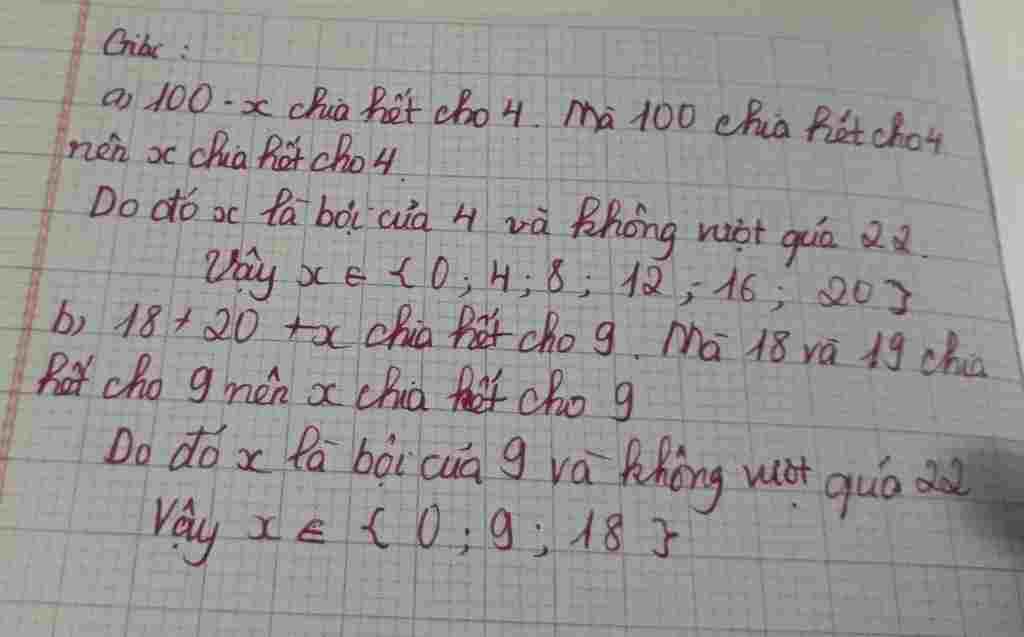 Giải :
a) 100 - x chia hết cho 4. Mà 100 chia hết cho 4
nên x chia hết cho 4.
Do đó x là bội của 4 và không vượt quá 22.
Vậy x ∈ { 0 ; 4 ; 8 ; 12 ; 16 ; 20 }
b) 18 + 20 + x chia hết cho 9. Mà 18 và 19 chia
hết cho 9 nên x chia hết cho 9
Do đó x là bội của 9 và không vượt quá 22
Vậy x ∈ { 0 ; 9 ; 18 }